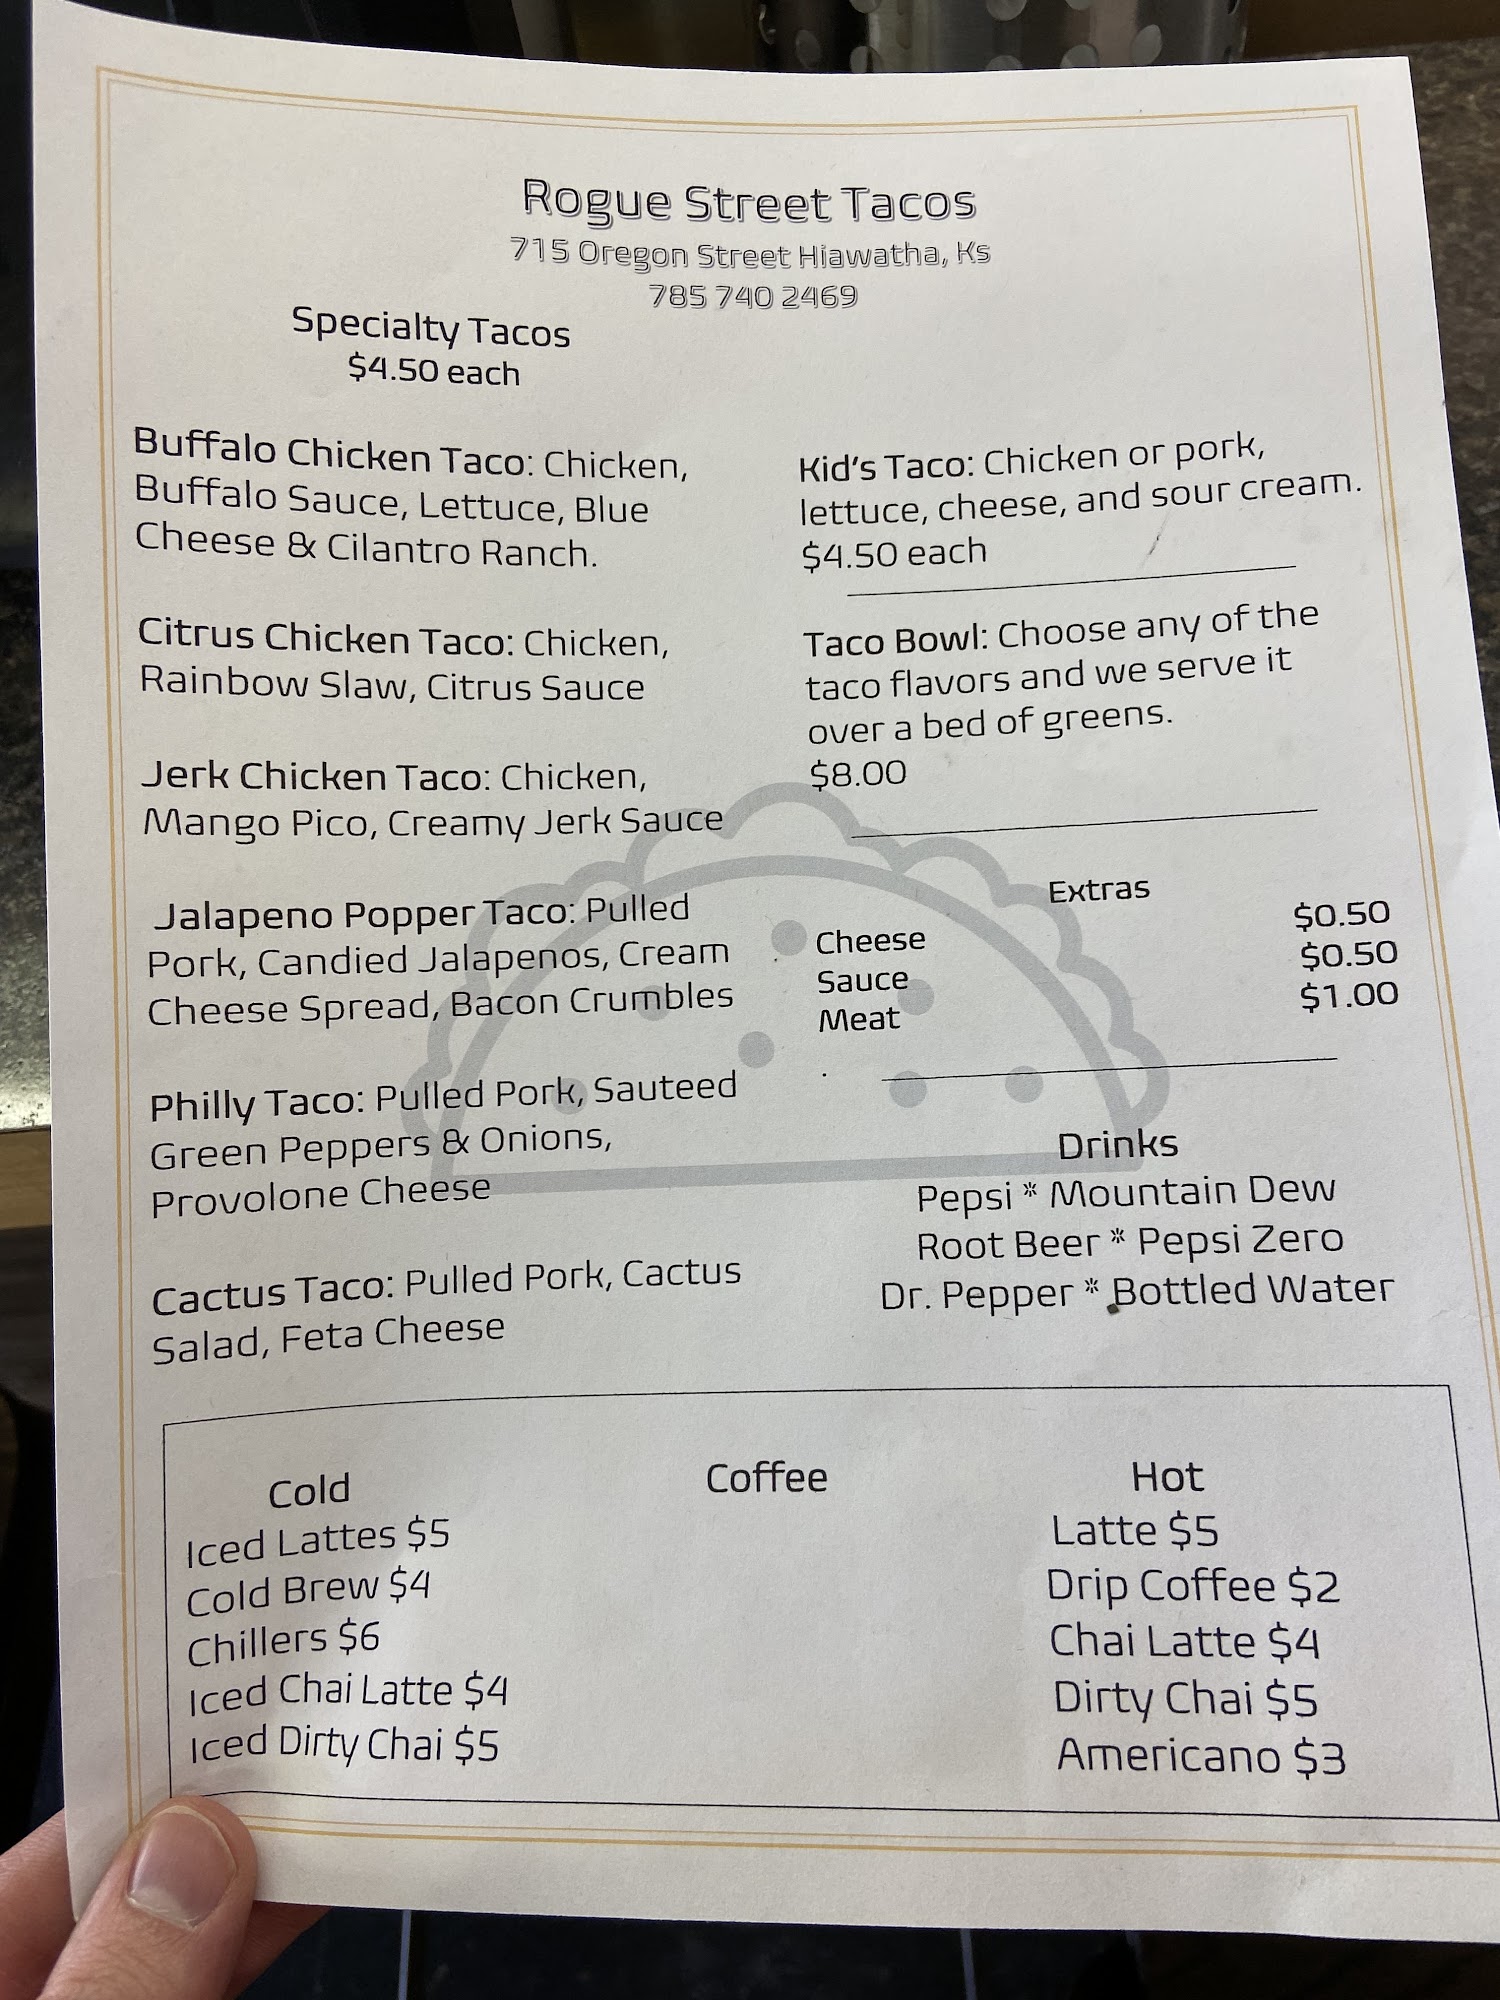 Rogue Street Tacos
715 Oregon Street Hiawatha, Ks
785 740 2469
Specialty Tacos
$4.50 each
Buffalo Chicken Taco: Chicken,
Buffalo Sauce, Lettuce, Blue
Cheese & Cilantro Ranch.
Citrus Chicken Taco: Chicken,
Rainbow Slaw, Citrus Sauce
Jerk Chicken Taco: Chicken,
Mango Pico, Creamy Jerk Sauce
Jalapeno Popper Taco: Pulled
Pork, Candied Jalapenos, Cream
Cheese Spread, Bacon Crumbles
Philly Taco: Pulled Pork, Sauteed
Green Peppers & Onions,
Provolone Cheese
Cactus Taco: Pulled Pork, Cactus
Salad, Feta Cheese
Kid's Taco: Chicken or pork,
lettuce, cheese, and sour cream.
$4.50 each
Taco Bowl: Choose any of the
taco flavors and we serve it
over a bed of greens.
$8.00
Extras
Cheese $0.50
Sauce $0.50
Meat $1.00
Drinks
Pepsi * Mountain Dew
Root Beer * Pepsi Zero
Dr. Pepper * Bottled Water
Coffee
Cold
Iced Lattes $5
Cold Brew $4
Chillers $6
Iced Chai Latte $4
Iced Dirty Chai $5
Hot
Latte $5
Drip Coffee $2
Chai Latte $4
Dirty Chai $5
Americano $3